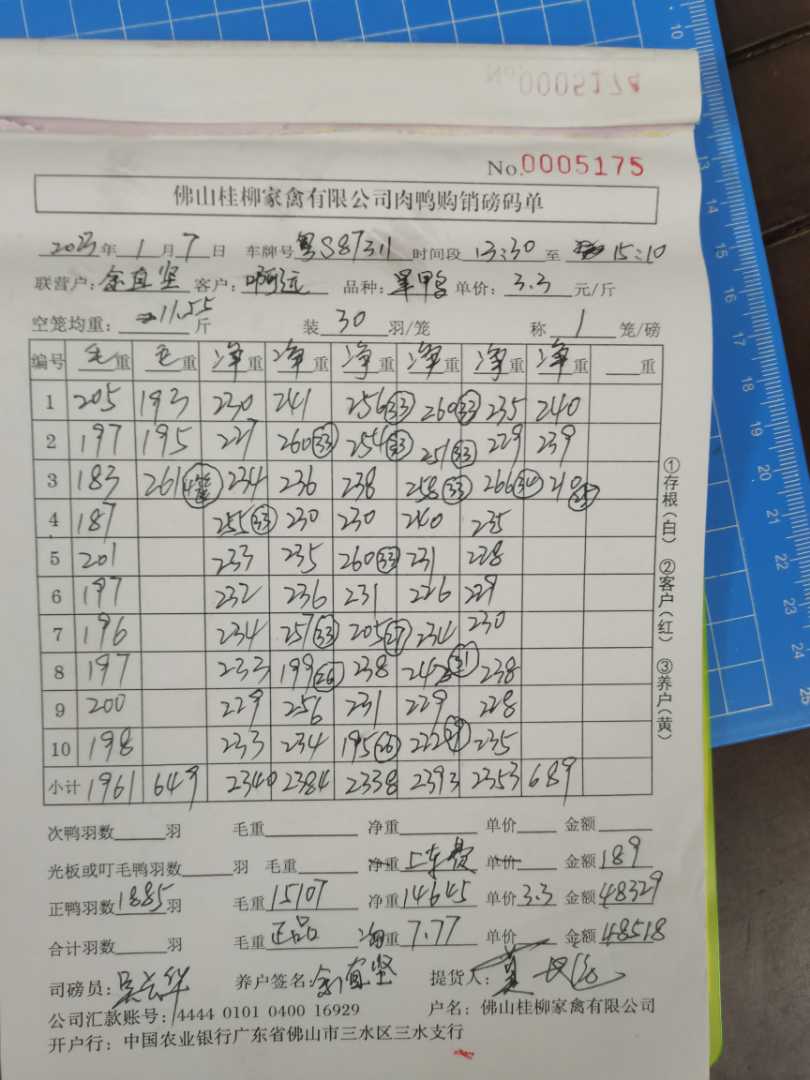 No.0005174
No.0005175
佛山桂柳家禽有限公司肉鸭购销磅码单
2023年 1月 7日 车牌号粤S87311 时间段 13:30 至 15:10
联营户:余宜坚 客户:啊远 品种:旱鸭 单价:3.3元/斤
空笼均重:11.55斤 装30羽/笼 称1笼/磅
编号 毛重 毛重 净重 净重 净重 净重 净重 净重 重
1 205 193 230 241 256(33) 260(33) 235 240
2 197 195 227 260(33) 254(33) 251(33) 229 239
3 183 261 234 236 238 258(33) 266(34) 210
4 187 255(33) 230 230 240 235
5 201 233 235 260(33) 231 228
6 197 232 236 231 226 229
7 196 234 257(33) 205(27) 234 230
8 197 233 199(26) 238 242(31) 238
9 200 229 256 231 229 228
10 198 233 234 195(26) 222 235
小计 1961 649 2340 2384 2338 2393 2353 689
①存根(白) ②客户(红) ③养户(黄)
次鸭羽数 羽 毛重 净重 单价 金额
光板或叮毛鸭羽数 羽 毛重 净重 上车费 单价 金额189
正鸭羽数1885羽 毛重15107 净重14645 单价3.3 金额48329
合计羽数 羽 毛重正品 均重7.77 单价 金额48518
司磅员: 养户签名:余宜坚 提货人:
公司汇款账号:4444 0101 0400 16929 户名:佛山桂柳家禽有限公司
开户行:中国农业银行广东省佛山市三水区三水支行
10
13
14
15
16
17
18
19
20
21
22
23
24
25